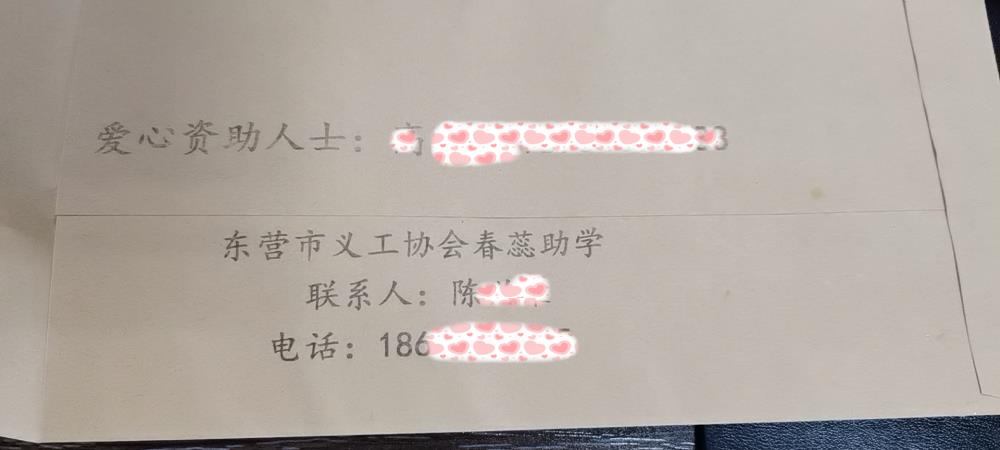 爱心资助人士：高
东营市义工协会春蕊助学
联系人：陈
电话：186